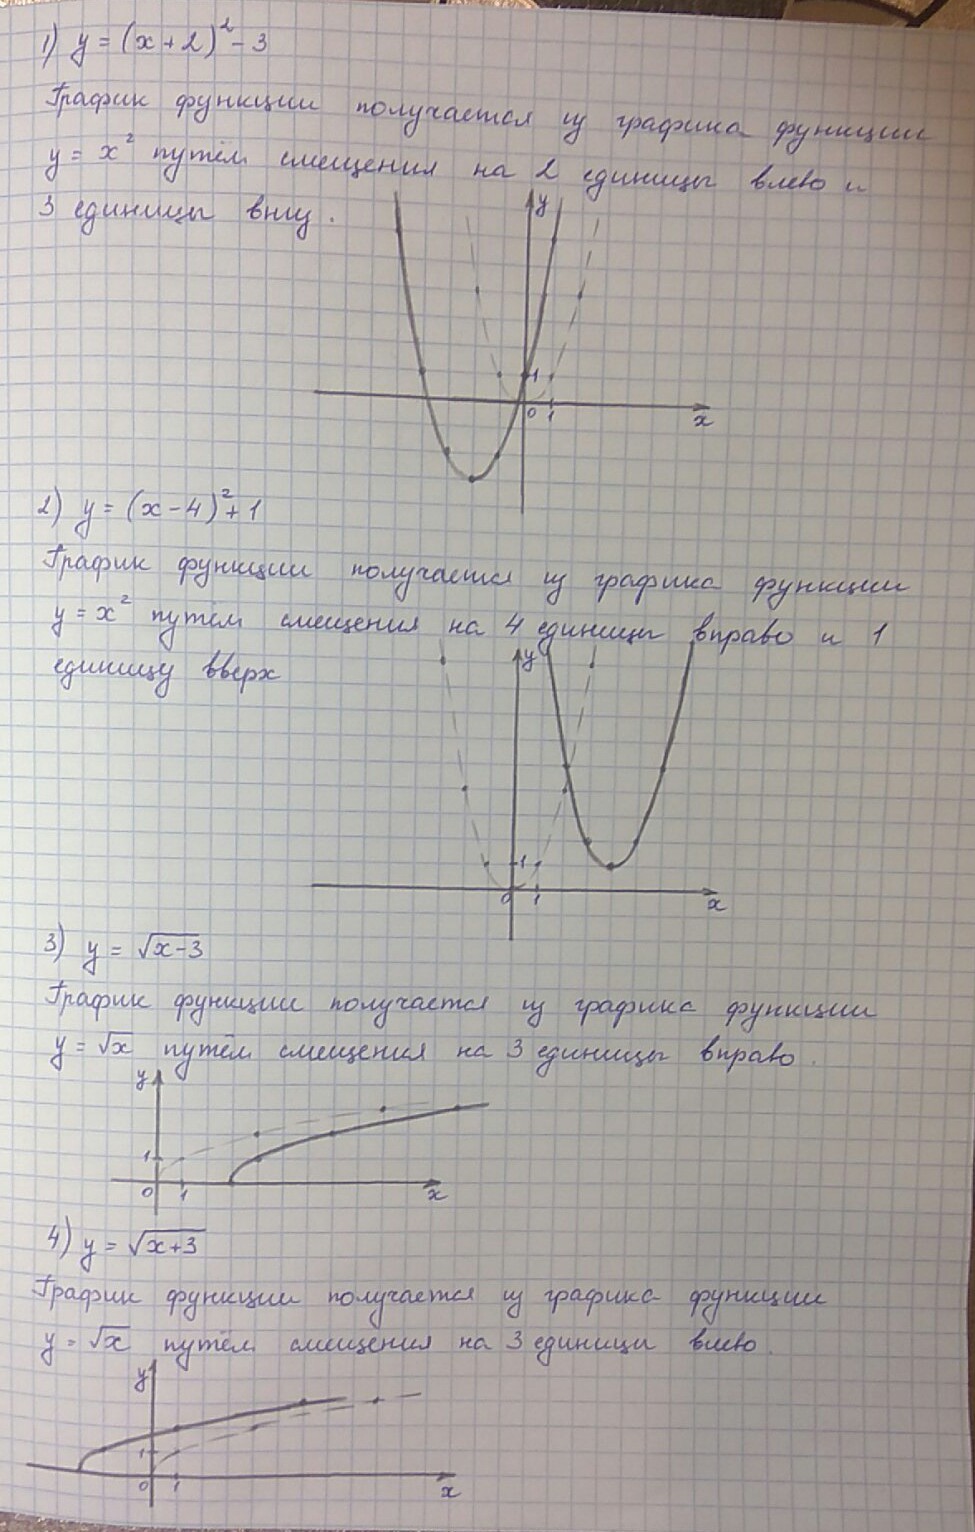 1) y = (x + 2)² - 3
График функции получается из графика функции
y = x² путём смещения на 2 единицы влево и
3 единицы вниз.
y
1
0 1
x
2) y = (x - 4)² + 1
График функции получается из графика функции
y = x² путём смещения на 4 единицы вправо и 1
единицу вверх
y
1
0 1
x
3) y = √x-3
График функции получается из графика функции
y = √x путём смещения на 3 единицы вправо.
y
1
0 1
x
4) y = √x+3
График функции получается из графика функции
y = √x путём смещения на 3 единицы влево.
y
1
0 1
x